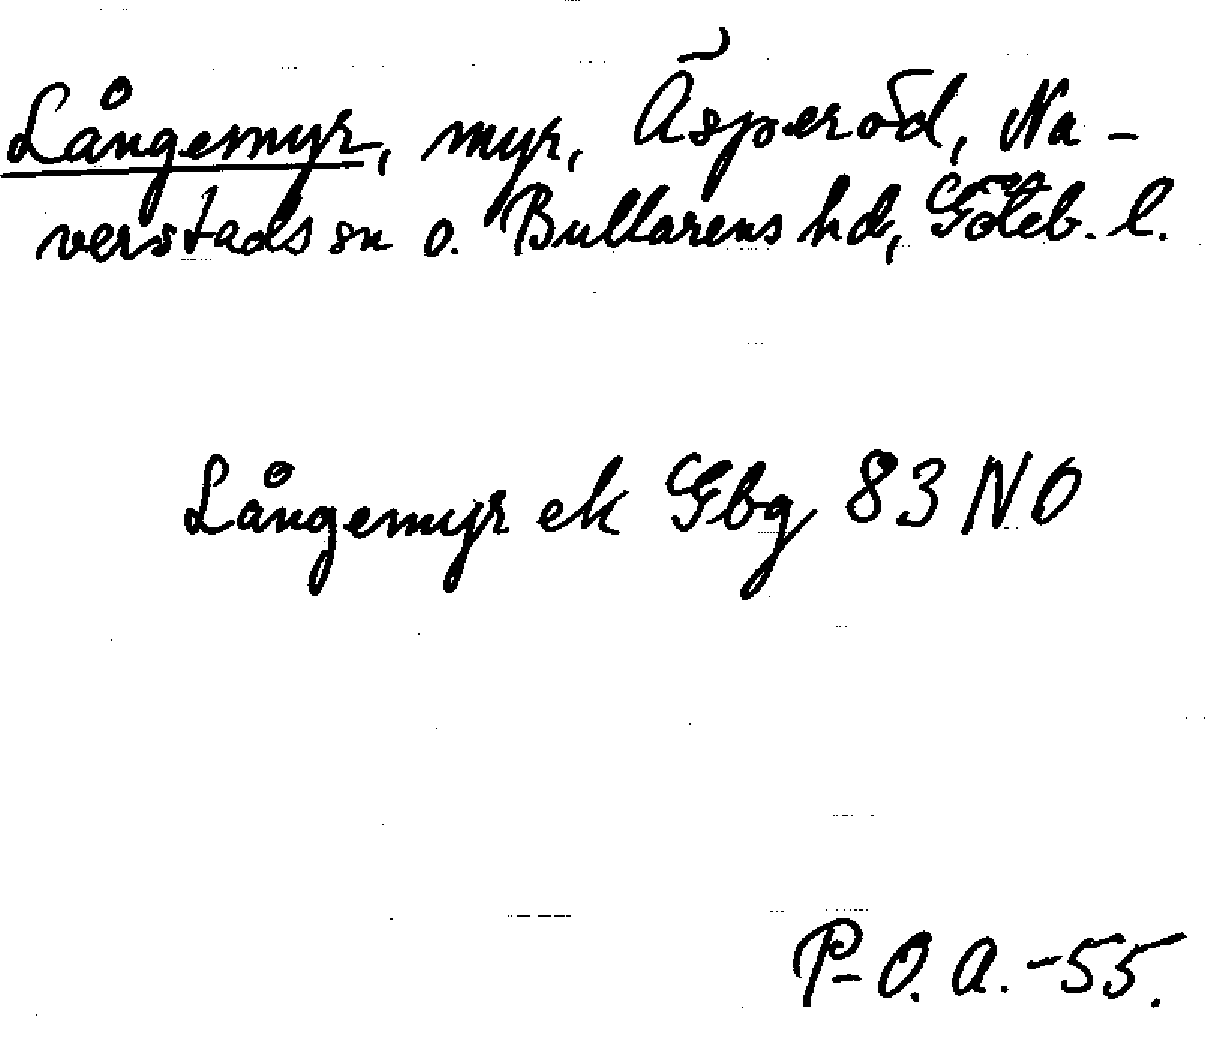 Långemyr, myr, Äsperöd, Na-
verstads sn o. Bullarens hd, Göteb. l.
Långemyr ek Gbg 83 NO
P-O. A. -55.